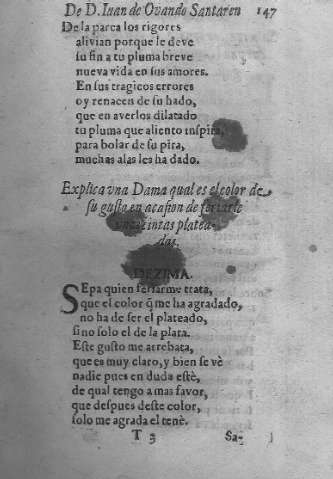 De D. Iuan de Ovando Santaren 147
De la parca los rigores
alivian porque le deve
su fin a tu pluma breve
nueva vida en sus amores.
En sus tragicos errores
oy renacen de su hado,
que en averlos dilatado
tu pluma que aliento inspira,
para bolar de su pira,
muchas alas les ha dado.
Explica vna Dama qual es el color de
su gusto en ocasion de feriarle
vnas cintas platea-
das.
DEZIMA.
SEpa quien feriarme trata,
que el color q̃ me ha agradado,
no ha de ser el plateado,
sino solo el de la plata.
Este gusto me arrebata,
que es muy claro, y bien se vè
nadie pues en duda estè,
de qual tengo a mas favor,
que despues deste color,
solo me agrada el tenè.
T 3 Sa-